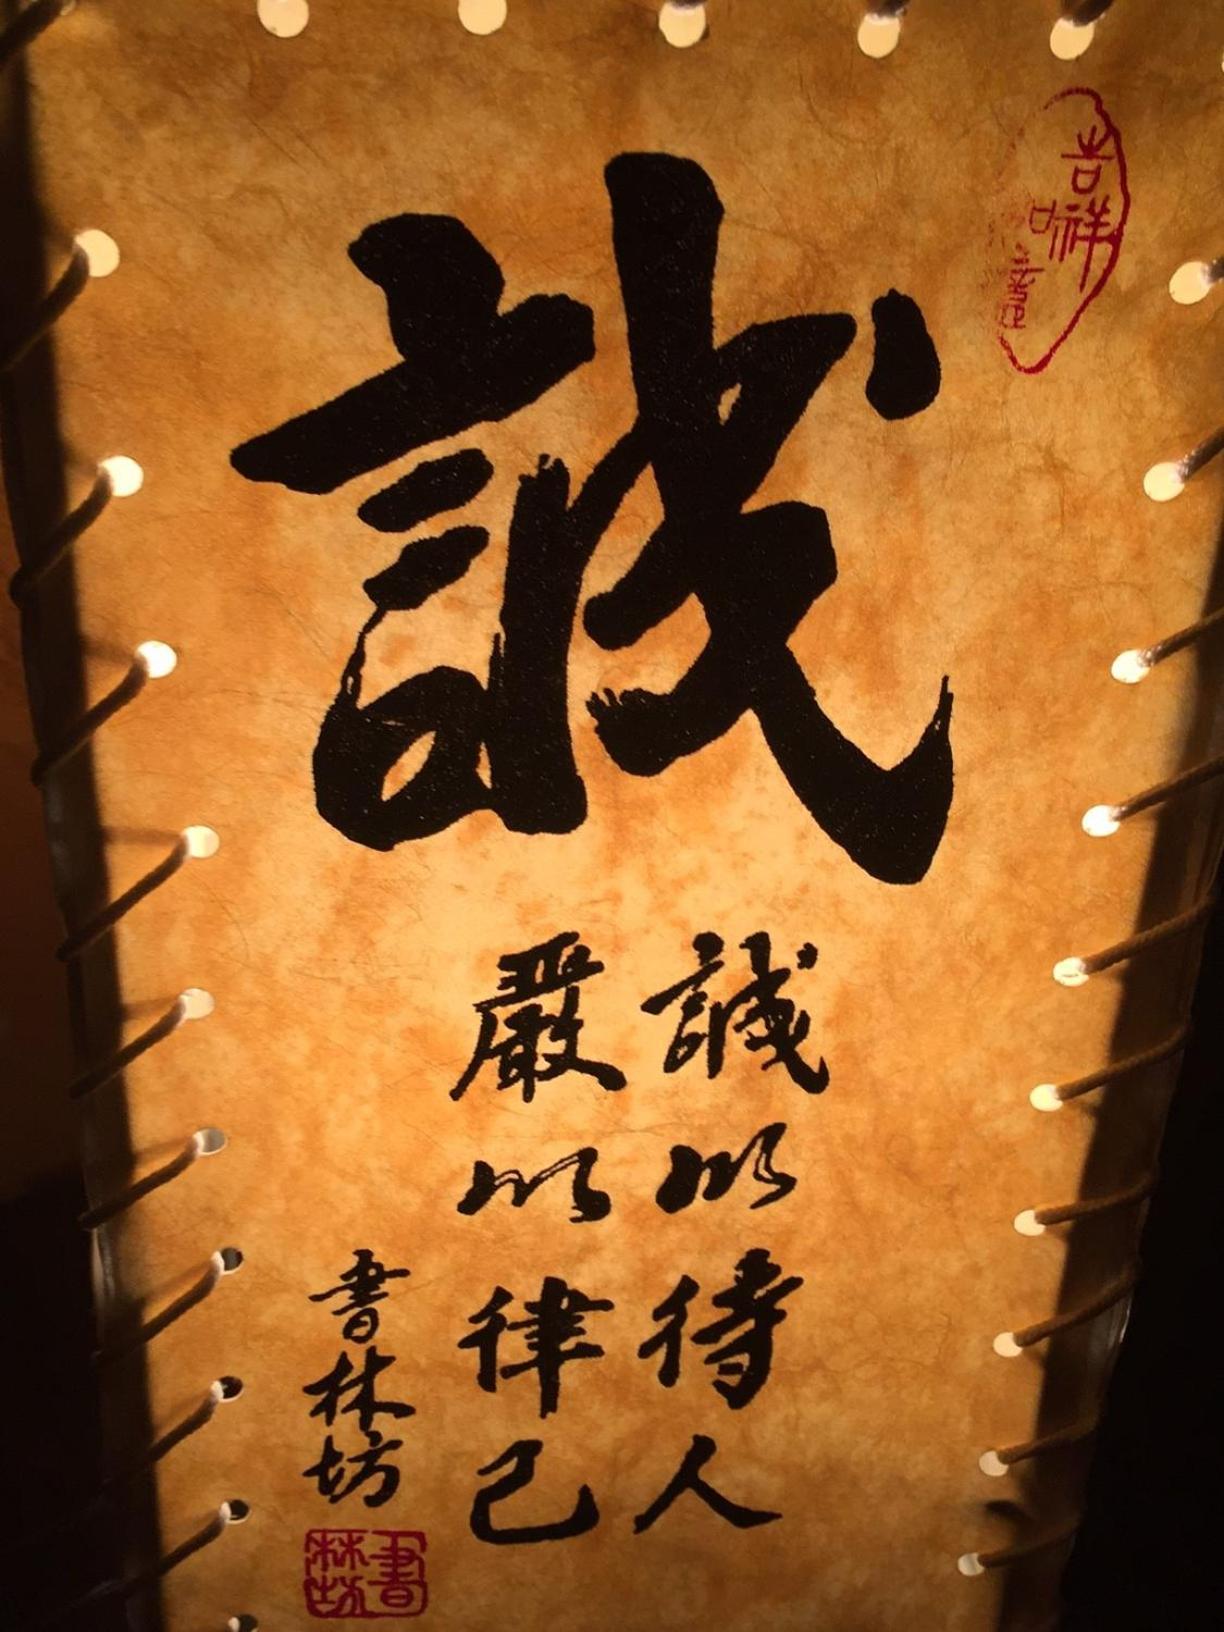 吉祥
如意
誠
誠以待人
嚴以律己
書林坊
書林坊